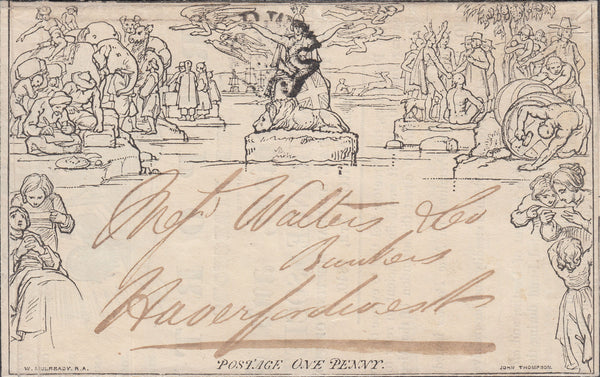 Mess^rs Walters & Co
Bankers
Haverfordwest
POSTAGE ONE PENNY.
W. MULREADY, R.A.
JOHN THOMPSON.